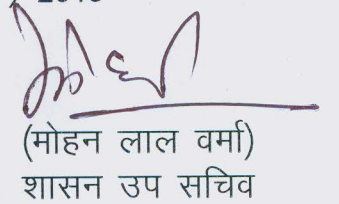 (मोहन लाल वर्मा)
शासन उप सचिव